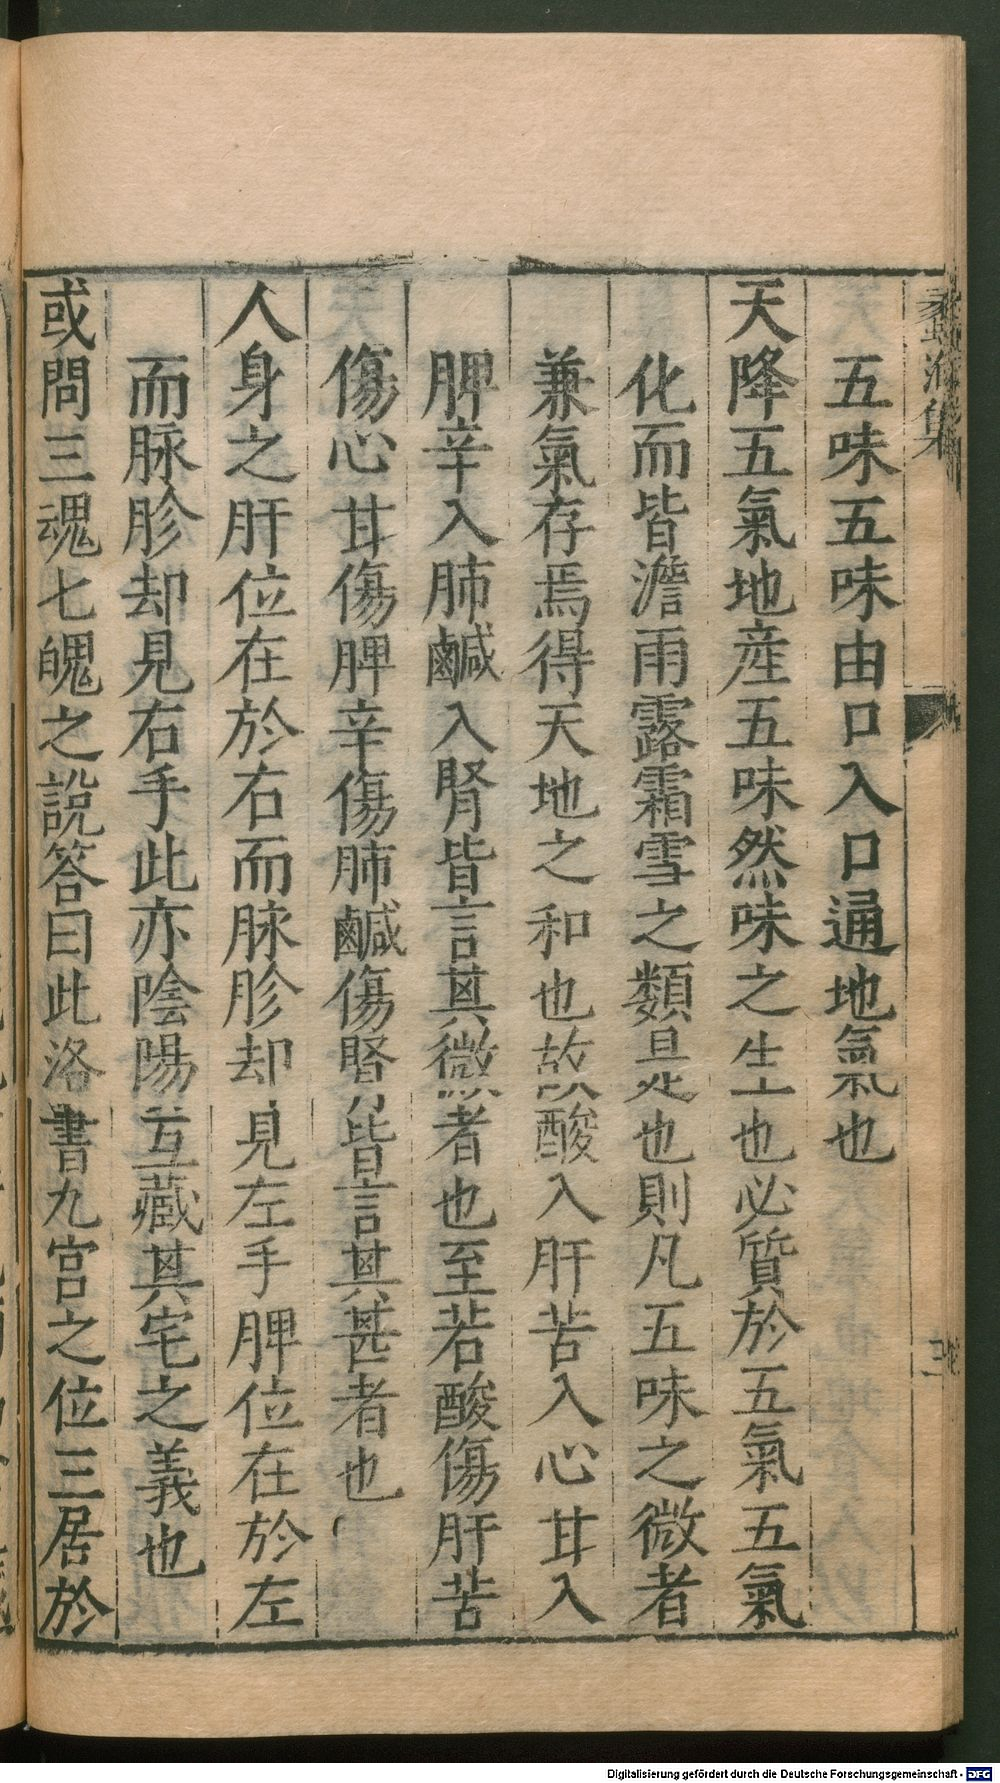 蠡海集
五味五味由口入口通地氣也
天降五氣地産五味然味之生也必質於五氣五氣
化而皆澹雨露霜雪之類是也則凡五味之微者
兼氣存焉得天地之和也故酸入肝苦入心甘入
脾辛入肺鹹入腎皆言其微者也至若酸傷肝苦
傷心甘傷脾辛傷肺鹹傷腎皆言其甚者也
人身之肝位在於右而脉胗却見左手脾位在於左
而脉胗却見右手此亦陰陽互藏其宅之義也
或問三魂七魄之說答曰此洛書九宮之位三居於
Digitalisierung gefördert durch die Deutsche Forschungsgemeinschaft - DFG